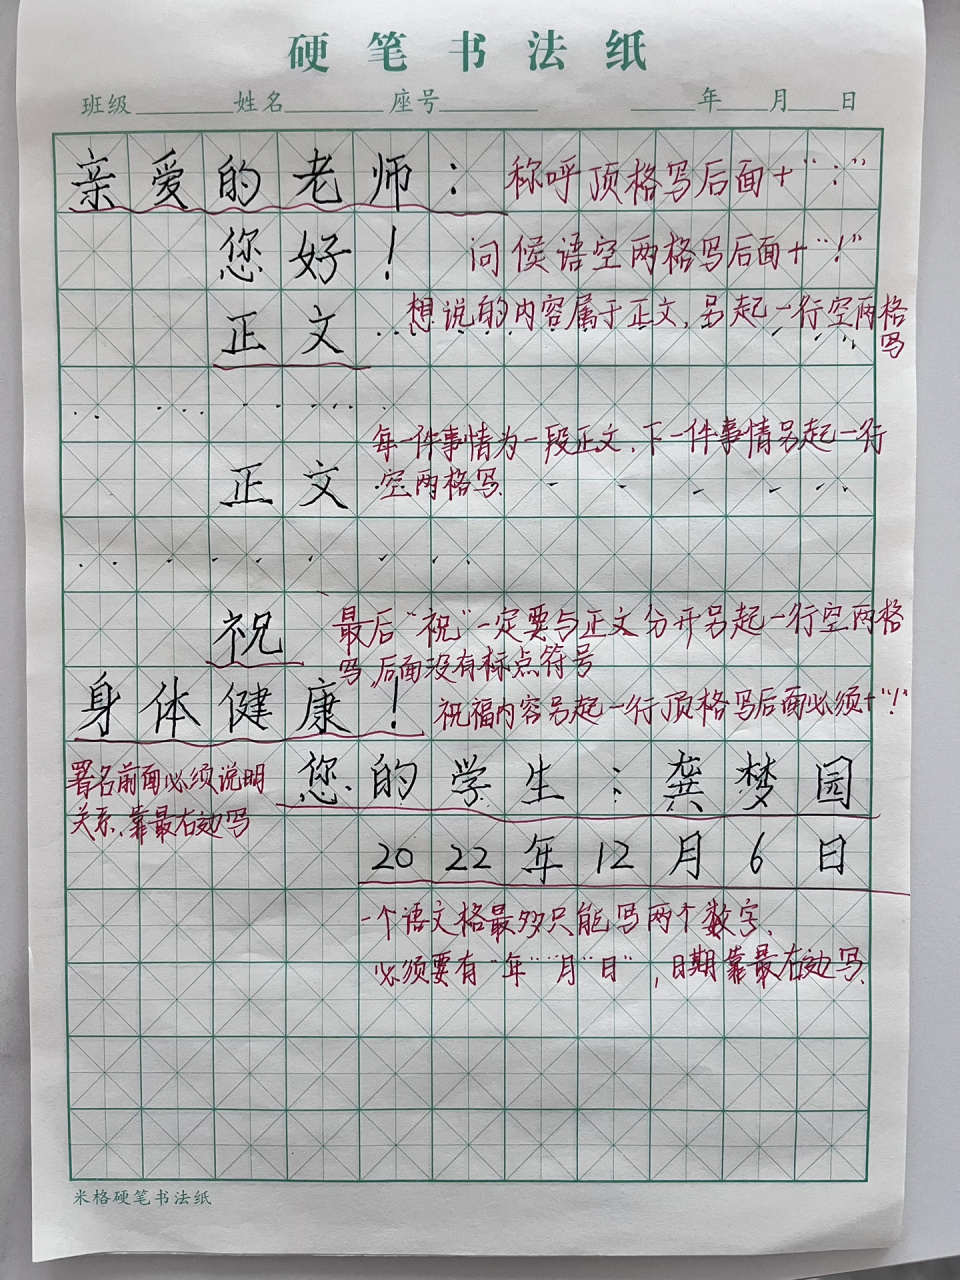 硬笔书法纸
班级 姓名 座号 年 月 日
亲爱的老师： 称呼顶格写后面+“：”
您好！ 问候语空两格写后面+“！”
正文 想说的内容属于正文，另起一行空两格写
每一件事情为一段正文，下一件事情另起一行
正文 空两格写
祝 最后“祝”一定要与正文分开另起一行空两格
写，后面没有标点符号
身体健康！ 祝福内容另起一行顶格写后面必须+“！”
署名前面必须说明 您的学生：龚梦园
关系，靠最右边写
2022年12月6日
一个语文格最多只能写两个数字，
必须要有“年”“月”“日”，日期靠最右边写
米格硬笔书法纸